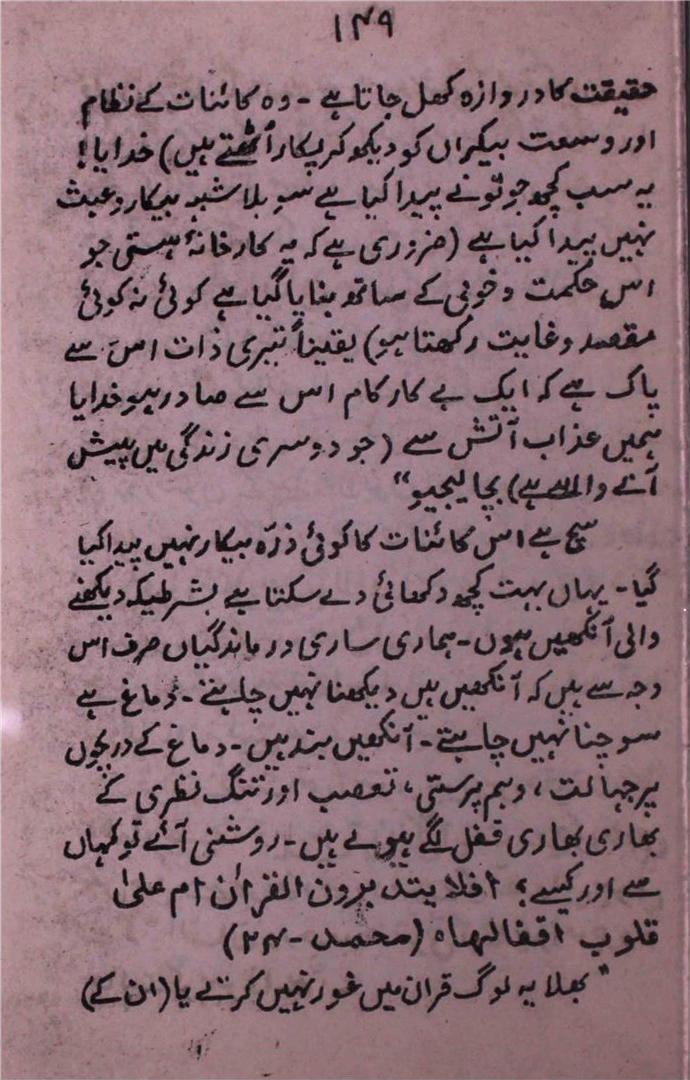 ۱۴۹
حقیقت کا دروازہ کھل جاتا ہے - وہ کائنات کے نظام
اور وسعت بیکراں کو دیکھ کر پکار اُٹھتے ہیں) خدایا!
یہ سب کچھ جو تو نے پیدا کیا ہے سو بلاشبہ بیکار و عبث
نہیں پیدا کیا ہے (ضروری ہے کہ یہ کارخانۂ ہستی جو
اس حکمت و خوبی کے ساتھ بنایا گیا ہے کوئی نہ کوئی
مقصد و غایت رکھتا ہو) یقیناً تیری ذات اس سے
پاک ہے کہ ایک بے کار کام اس سے صادر ہو خدایا
ہمیں عذاب آتش سے (جو دوسری زندگی میں پیش
آنے والا ہے) بچا لیجیو“
سچ ہے اس کائنات کا کوئی ذرّہ بیکار نہیں پیدا کیا
گیا - یہاں بہت کچھ دکھائی دے سکتا ہے بشرطیکہ دیکھنے
والی آنکھیں ہوں - ہماری ساری درماندگیاں صرف اس
وجہ سے ہیں کہ آنکھیں ہیں دیکھنا نہیں چاہتے - دماغ ہے
سوچنا نہیں چاہتے - آنکھیں بند ہیں - دماغ کے دریچوں
پر جہالت، وہم پرستی، تعصب اور تنگ نظری کے
بھاری بھاری قفل لگے ہوے ہیں - روشنی آئے تو کہاں
سے اور کیسے؟ افلا یتدبرون القراٰن ام علیٰ
قلوب اقفالہاہ (محمد - ۲۴)
"بھلا یہ لوگ قران میں غور نہیں کرتے یا (ان کے)